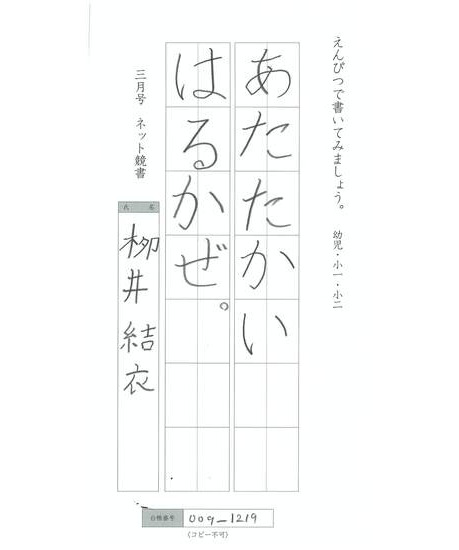 えんぴつで書いてみましょう。 幼児・小一・小二
あたたかい
はるかぜ。
三月号 ネット競書
氏名
柳井結衣
台帳番号 009-1219
(コピー不可)